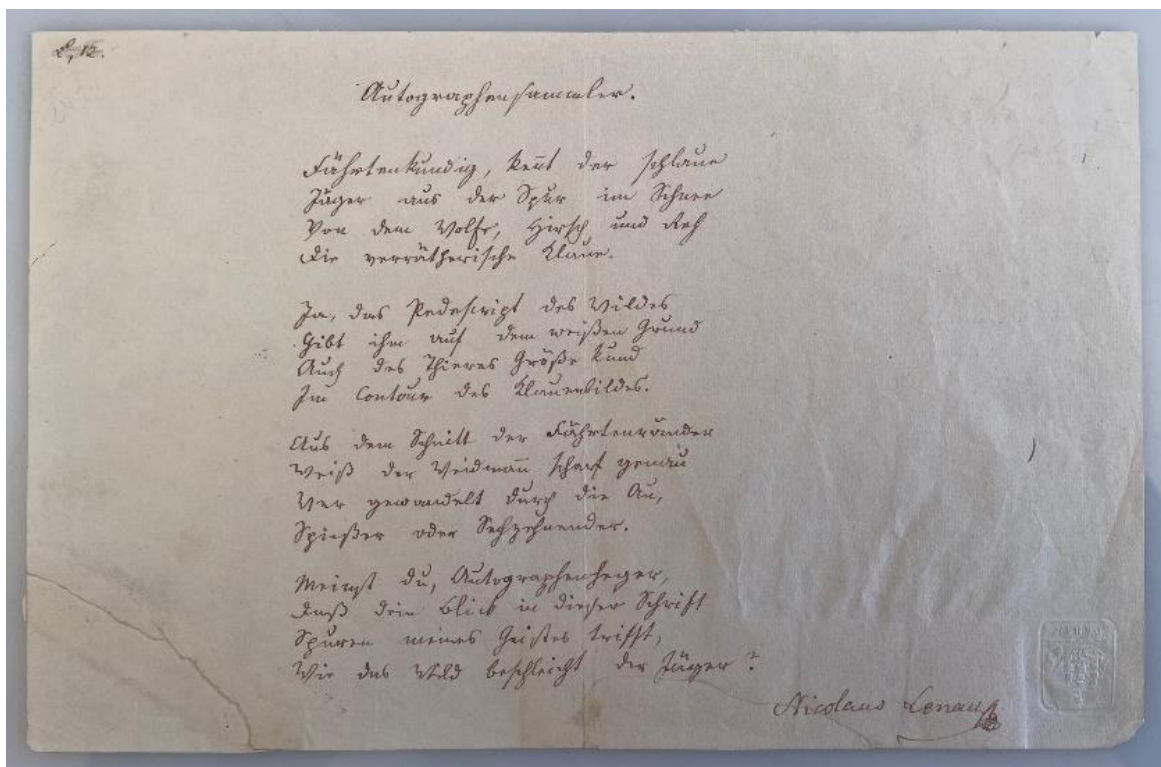 L, 12.
Autographensammler.
Fährtenkundig, keñt der schlaue
Jäger aus der Spur im Schnee
Von dem Wolfe, Hirsch und Reh
Die verrätherische Klaue.
Ja, das Pedescript des Wildes
Gibt ihm auf dem weißen Grund
Auch des Thieres Größe kund
Im Contour des Klauenbildes.
Aus dem Schnitt der Fährtenränder
Weiß der Weidmañ scharf genau
Wer gewandelt durch die Au,
Spießer oder Sechzehnender.
Meinst du, Autographenheger,
Daß dein Blick in dieser Schrift
Spuren meines Geistes trifft,
Wie das Wild beschleicht der Jäger?
Nicolaus Lenau